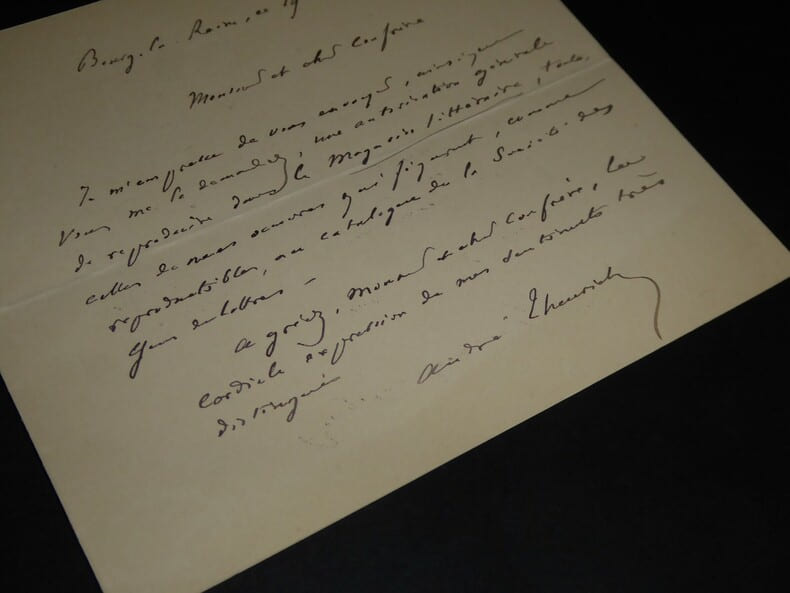 Bourg-la-Reine, ce 19
Monsieur et cher Confrère
Je m'empresse de vous envoyer, ainsi que
vous me le demandez, une autorisation générale
de reproduire dans le Magasin littéraire, toutes
celles de mes oeuvres qui figurent, comme
reproductibles, au catalogue de la Société des
Gens de lettres –
Agréez, Monsieur et cher Confrère, la
cordiale expression de mes sentiments très
distingués
André Theuriet